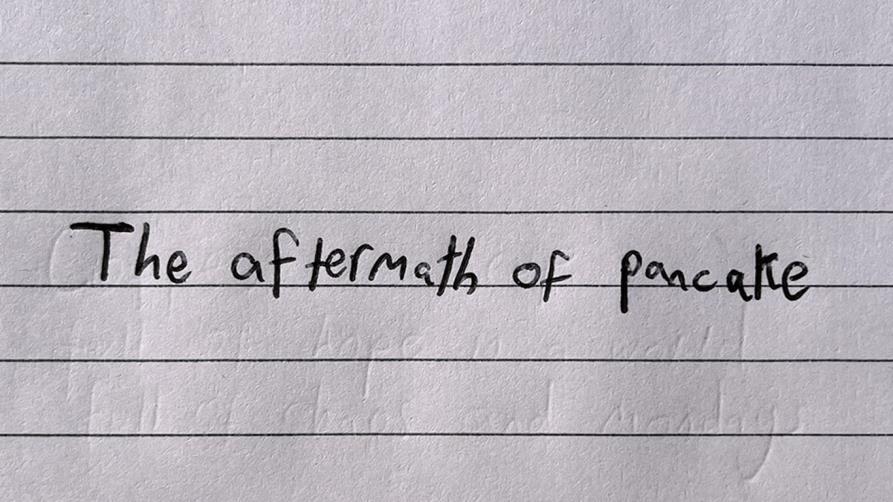 The aftermath of pancake